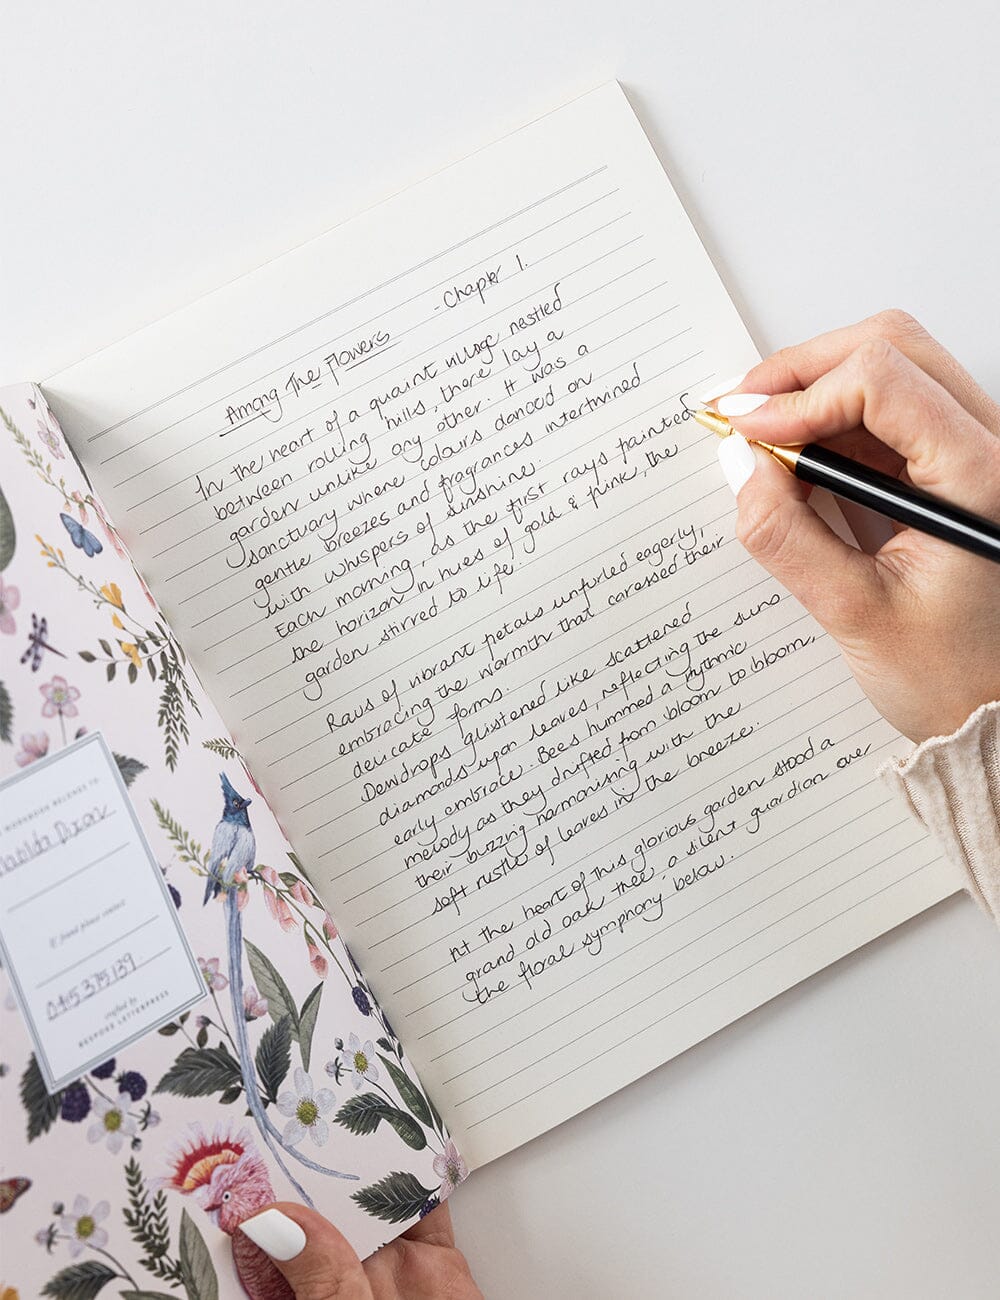 Among The Flowers - Chapter 1.
In the heart of a quaint village nestled
between rolling hills, there lay a
garden unlike any other. It was a
sanctuary where colours danced on
gentle breezes and fragrances intertwined
with whispers of sunshine.
Each morning, as the first rays painted
the horizon in hues of gold & pink, the
garden stirred to life.
Raws of vibrant petals unfurled eagerly,
embracing the warmth that caressed their
delicate forms.
Dewdrops glistened like scattered
diamonds upon leaves, reflecting the suns
early embrace. Bees hummed a rythmic
melody as they drifted from bloom to bloom,
their buzzing harmonising with the
soft rustle of leaves in the breeze.
At the heart of this glorious garden stood a
grand old oak tree, a silent guardian over
the floral symphony below.
BELONGS TO:
Dixon
If found please contact
0415 375 139
crafted by
BESPOKE LETTERPRESS